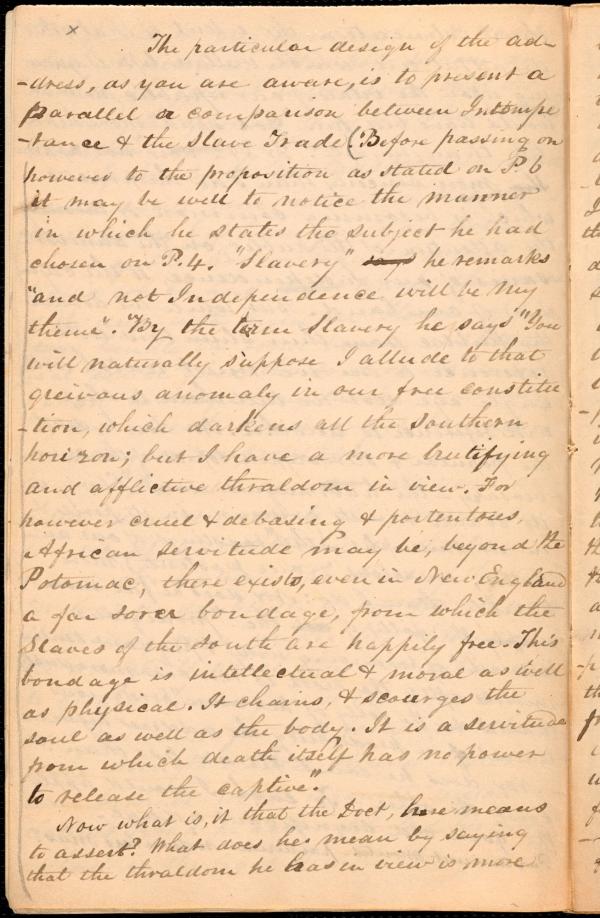 x
The particular design of the ad-
-dress, as you are aware, is to present a
parallel or comparison between Intempe
-rance & the Slave Trade (Before passing on
however to the proposition as stated on P. 6
it may be well to notice the manner
in which he states the subject he had
chosen on P. 4. "Slavery" says he remarks
"and not Independence will be my
theme". "By the term Slavery he says "You
will naturally suppose I allude to that
greivous anomaly in our free constitu
-tion, which darkens all the southern
horizon; but I have a more brutifying
and afflictive thraldom in view. For
however cruel & debasing & portentous,
African servitude may be, beyond the
Potomac, there exists, even in New England
a far sorer bondage, from which the
Slaves of the south are happily free. This
bondage is intellectual & moral as well
as physical. It chains, & scourges the
soul as well as the body. It is a servitude
from which death itself has no power
to release the captive".
Now what is, it that the Doct, here means
to assert? What does he mean by saying
that the thraldom he has in view is more